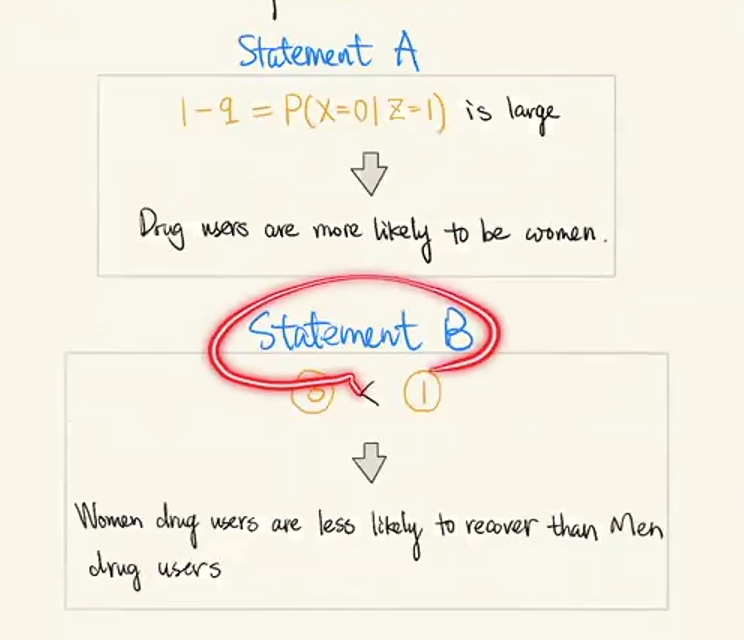 Statement A
1-q = P(X=0|Z=1) is large
Drug users are more likely to be women.
Statement B
⓪ < ①
Women drug users are less likely to recover than Men
drug users